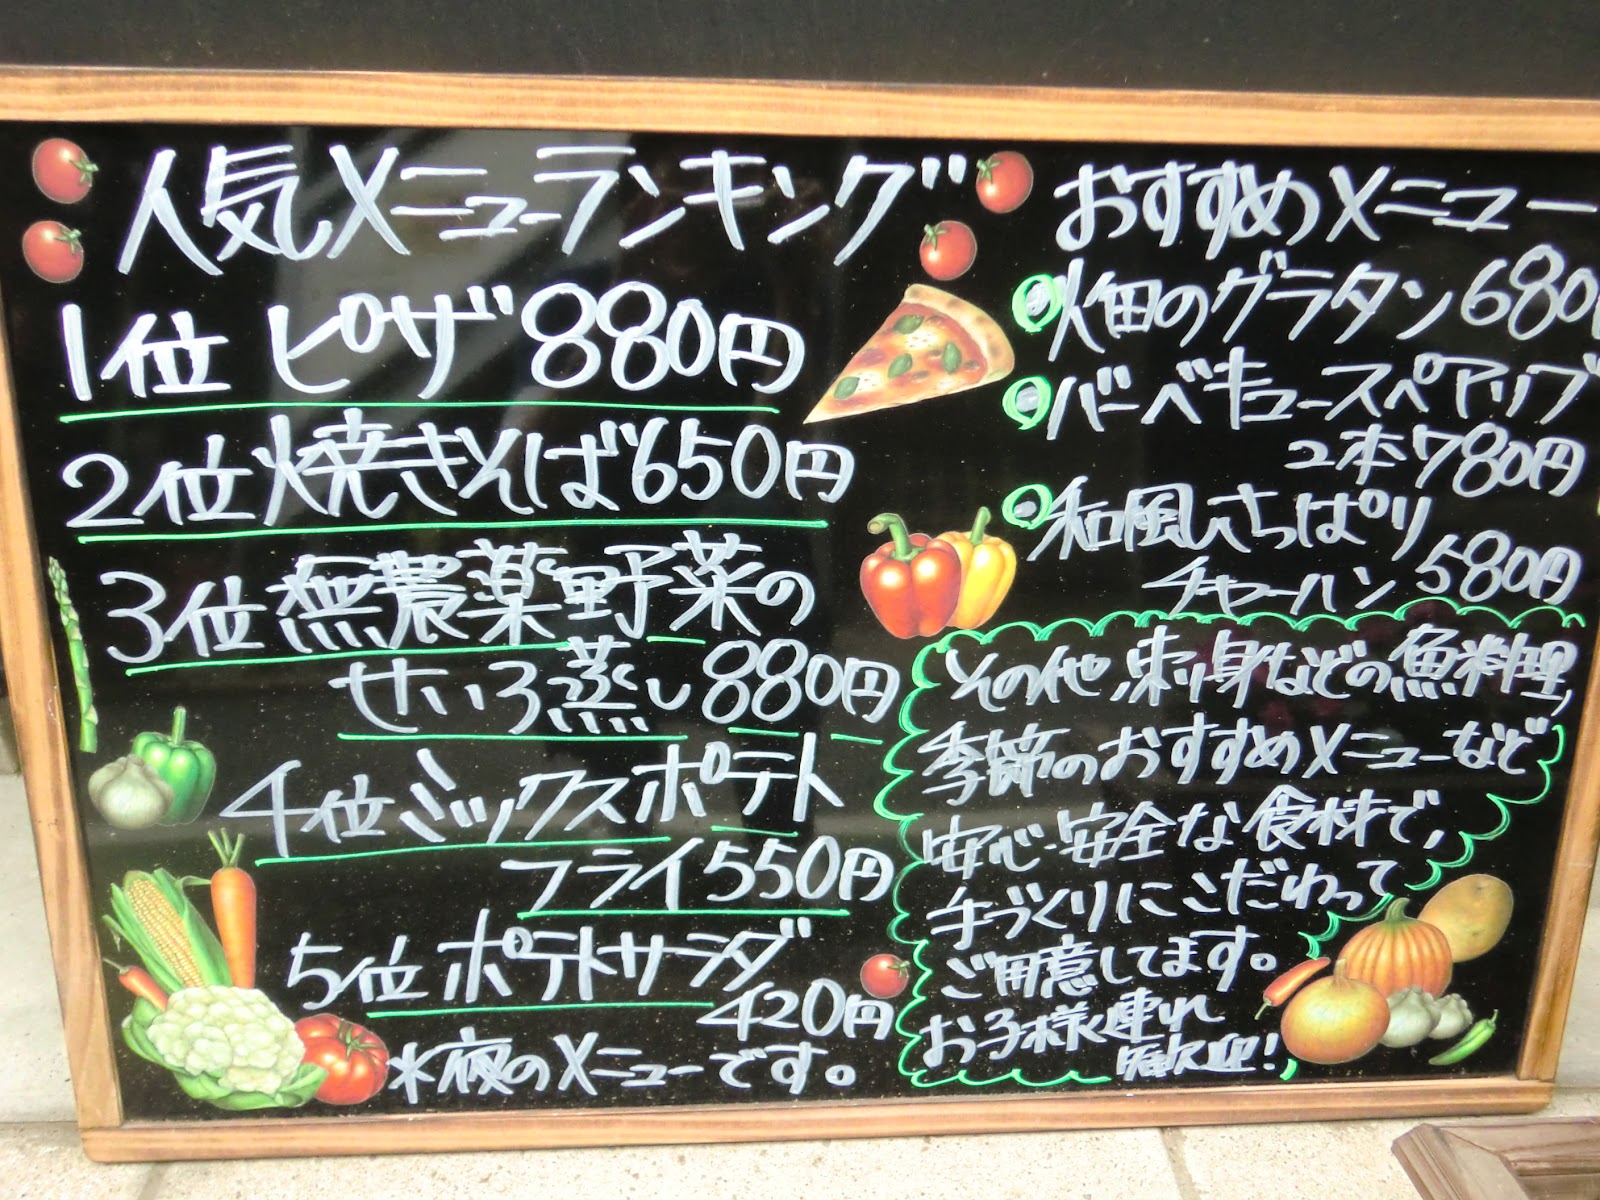 人気メニューランキング
1位 ピザ 880円
2位 焼きそば 650円
3位 無農薬野菜の
せいろ蒸し 880円
4位 ミックスポテト
フライ 550円
5位 ポテトサラダ
420円
*夜のメニューです。
おすすめメニュー
畑のグラタン 680
バーベキュースペアリブ
2本 780円
和風しさっぱり
チャーハン 580円
その他、刺身などの魚料理、
季節のおすすめメニューなど
安心・安全な食材で、
手づくりにこだわって
ご用意してます。
お子様連れ
歓迎!